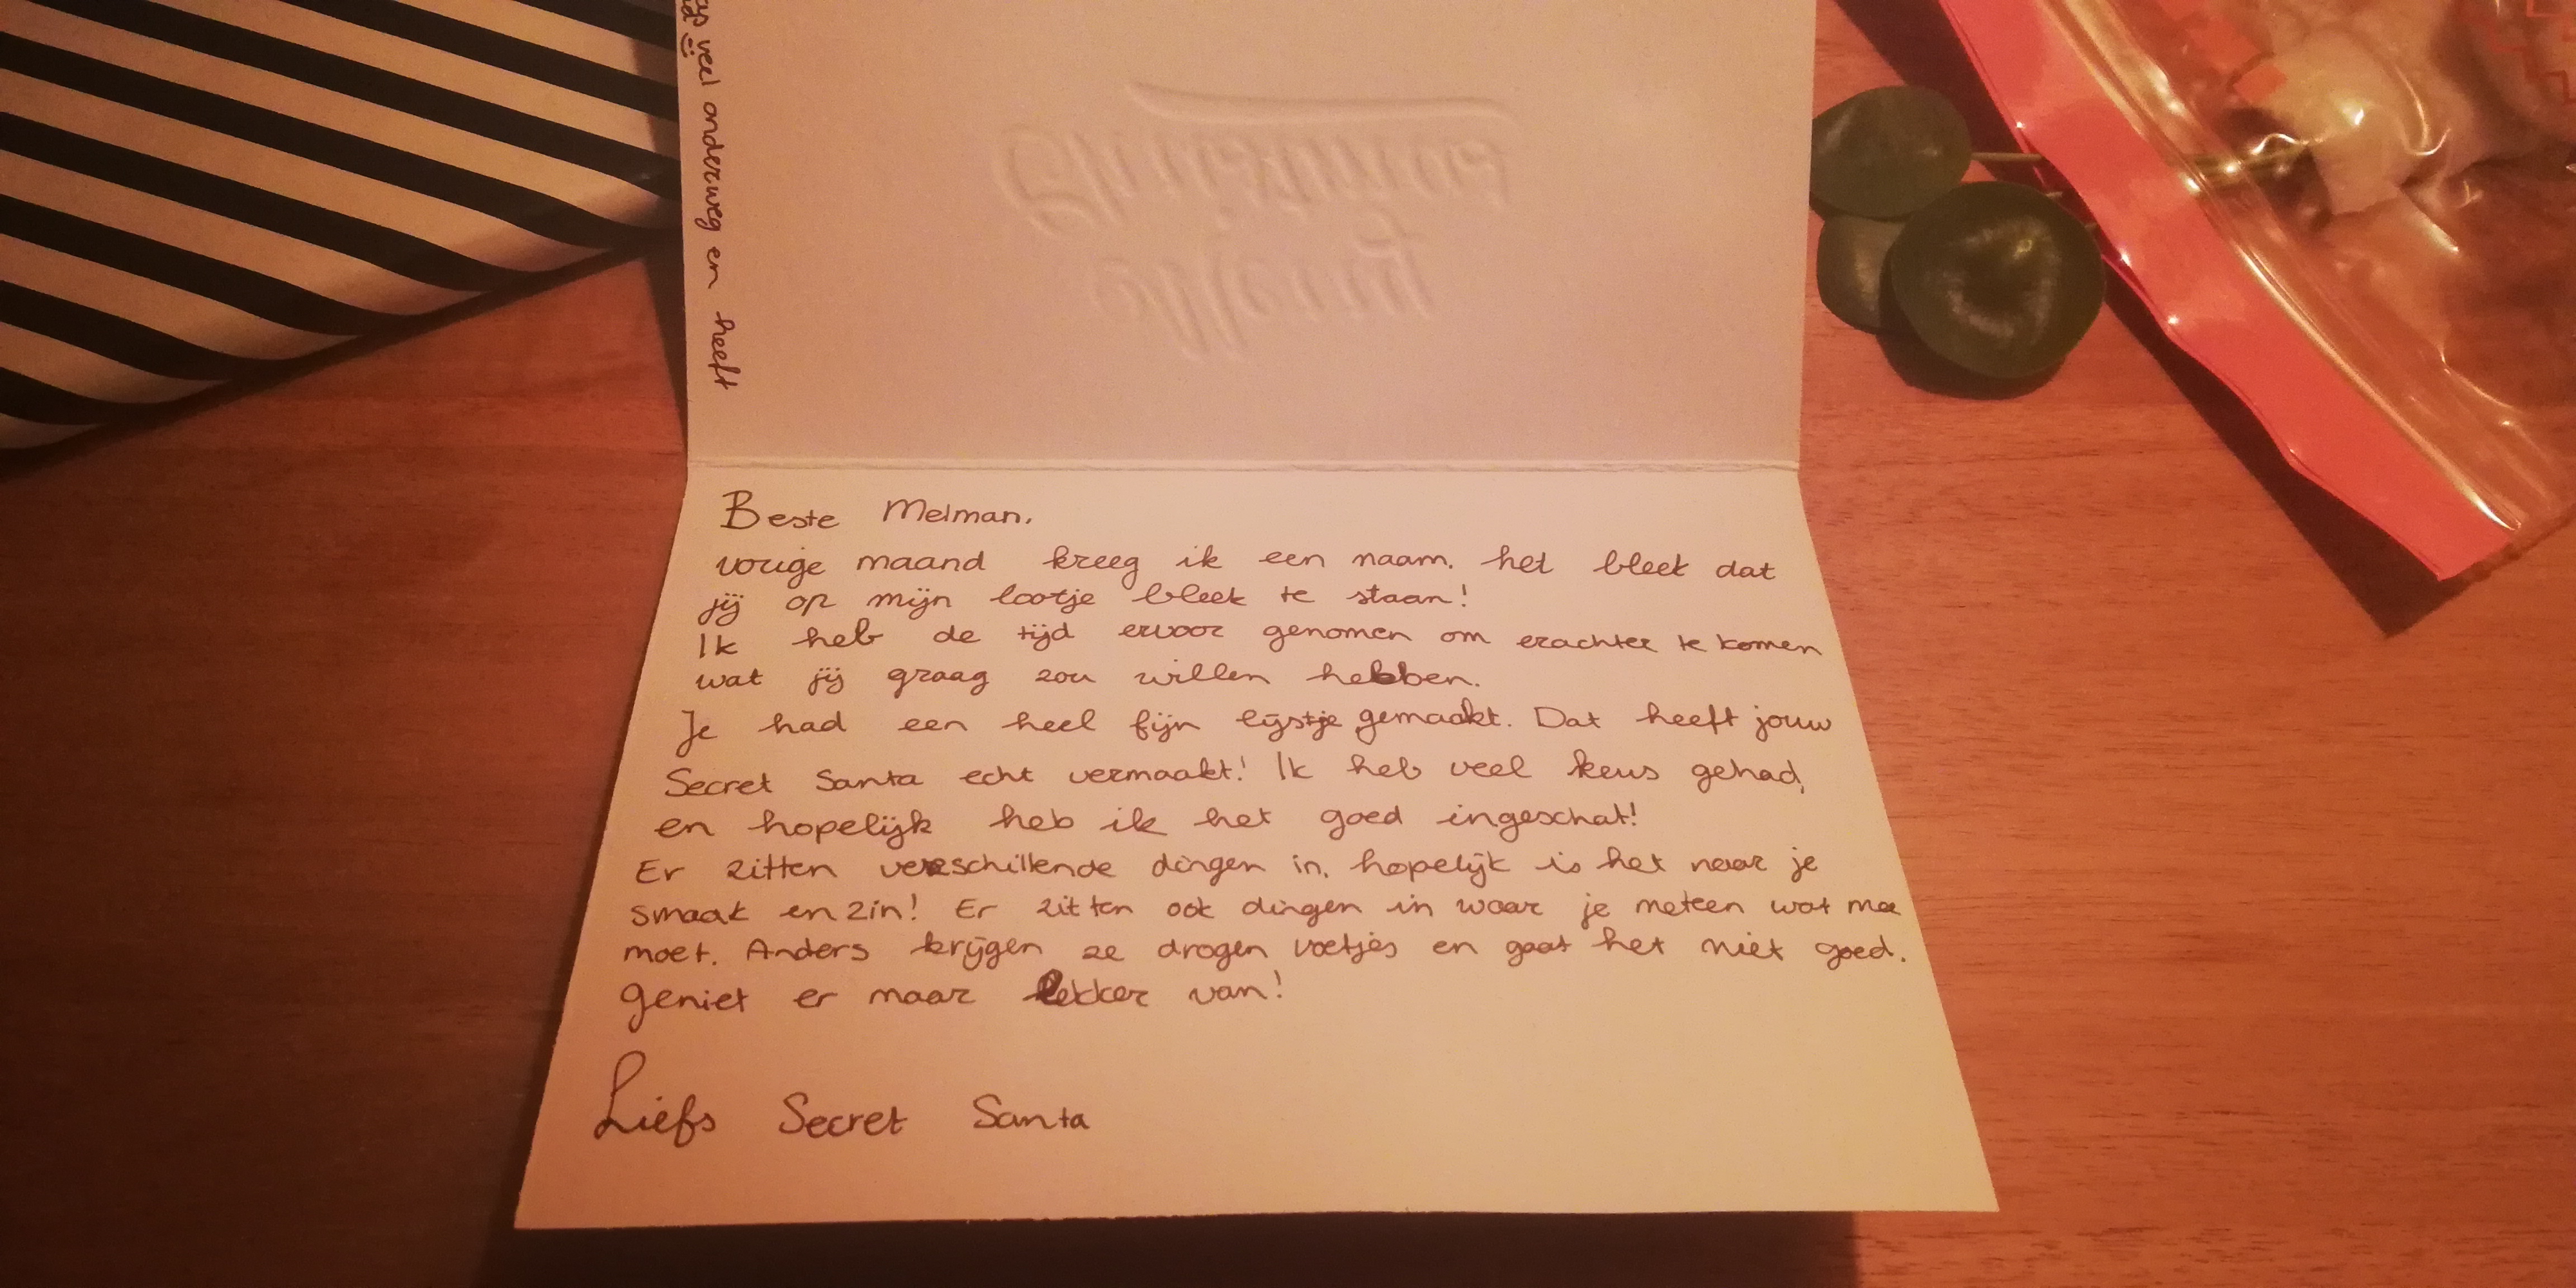 veel onderweg en heeft
Merry
Christmas
Beste Melman,
vorige maand kreeg ik een naam. het bleek dat
jij op mijn lootje bleek te staan!
Ik heb de tijd ervoor genomen om erachter te komen
wat jij graag zou willen hebben.
Je had een heel fijn lijstje gemaakt. Dat heeft jouw
Secret Santa echt vermaakt! Ik heb veel keus gehad,
en hopelijk heb ik het goed ingeschat!
Er zitten verschillende dingen in. hopelijk is het naar je
smaak en zin! Er zitten ook dingen in waar je meteen wat mee
moet. Anders krijgen ze drogen voetjes en gaat het niet goed.
geniet er maar lekker van!
Liefs Secret Santa